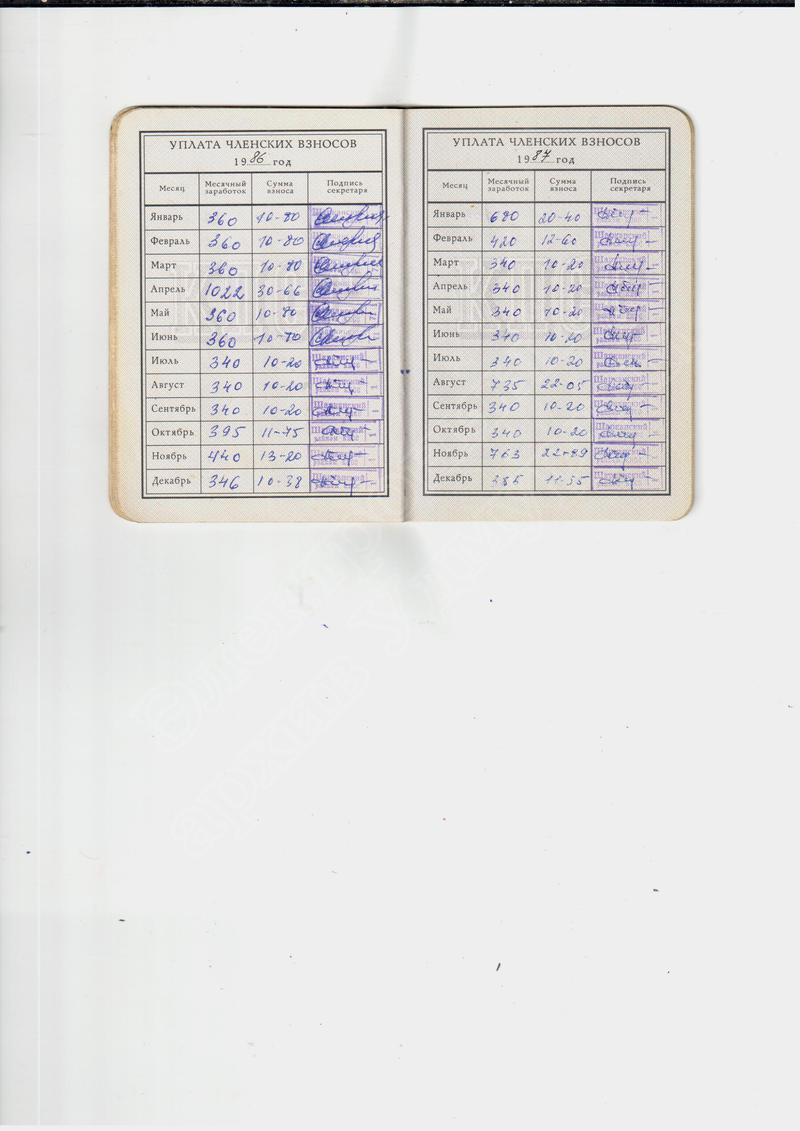 УПЛАТА ЧЛЕНСКИХ ВЗНОСОВ
1986 год
Месяц Месячный заработок Сумма взноса Подпись секретаря
Январь 360 10-80
Февраль 360 10-80
Март 360 10-80
Апрель 1022 30-66
Май 360 10-80
Июнь 360 10-80
Июль 340 10-20
Август 340 10-20
Сентябрь 340 10-20
Октябрь 395 11-75
Ноябрь 440 13-20
Декабрь 346 10-38
УПЛАТА ЧЛЕНСКИХ ВЗНОСОВ
1987 год
Месяц Месячный заработок Сумма взноса Подпись секретаря
Январь 680 20-40
Февраль 420 12-60
Март 340 10-20
Апрель 340 10-20
Май 340 10-20
Июнь 340 10-20
Июль 340 10-20
Август 735 22-05
Сентябрь 340 10-20
Октябрь 340 10-20
Ноябрь 763 22-89
Декабрь 385 11-55